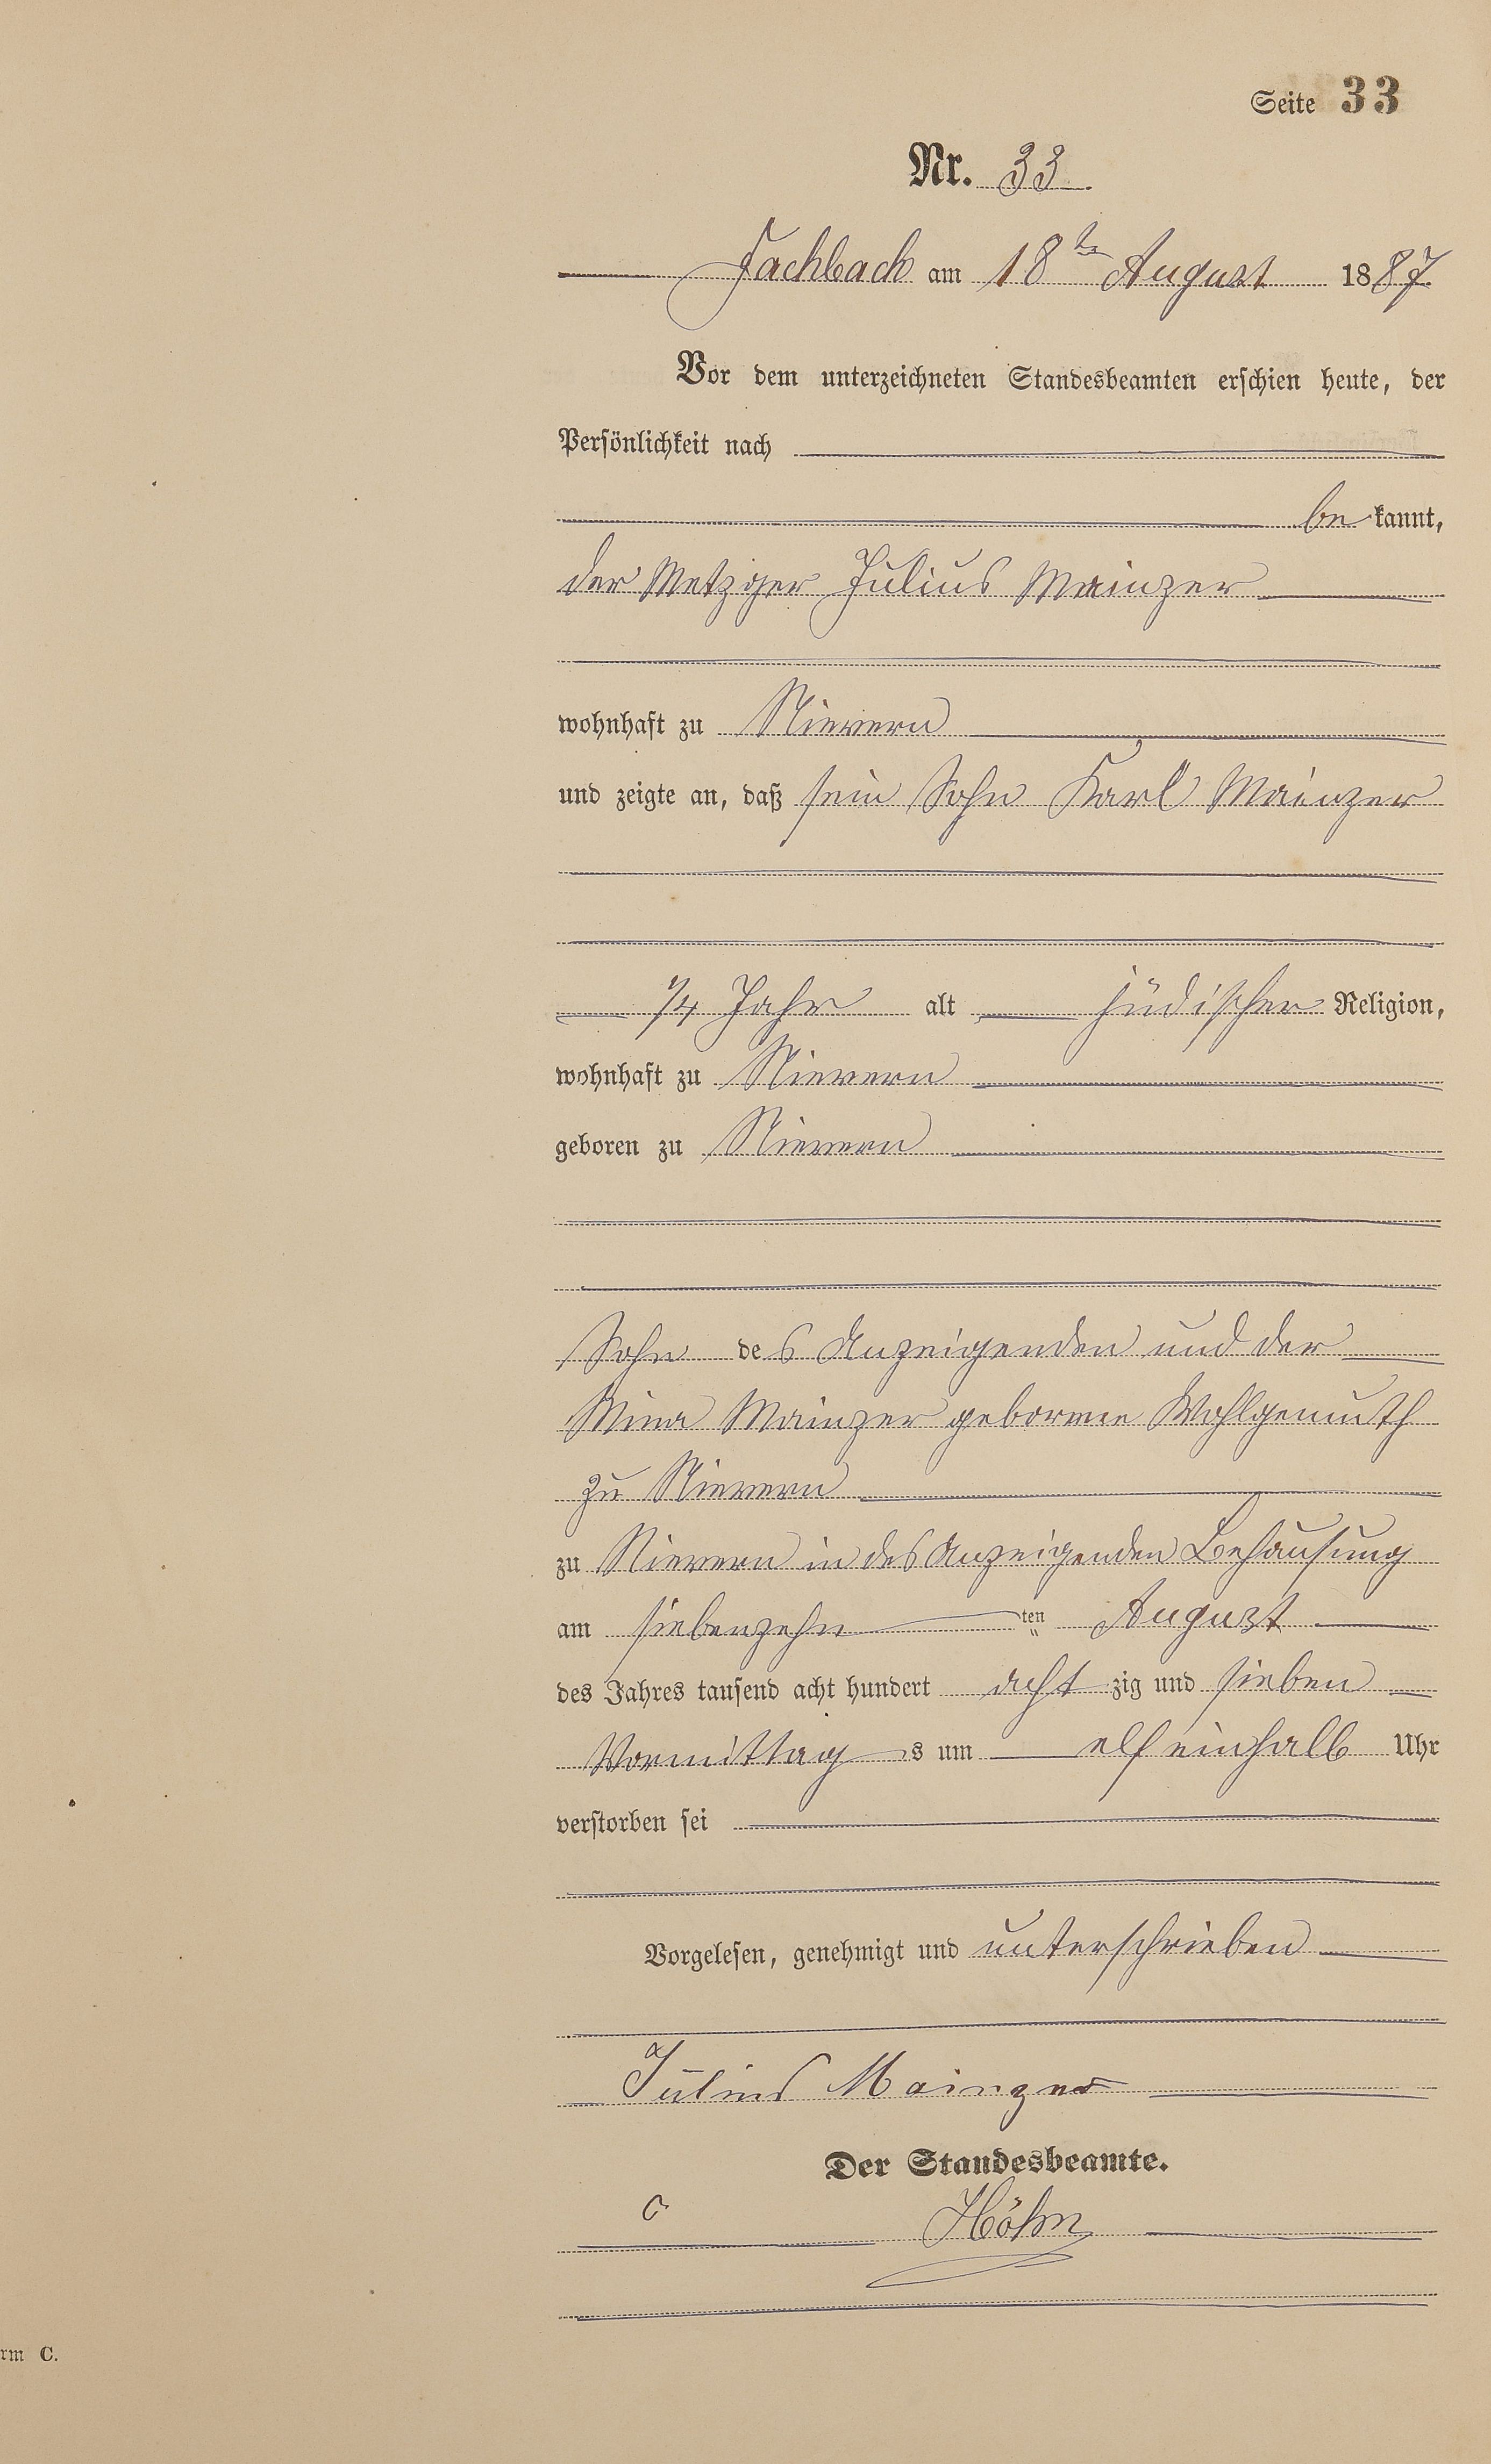 Seite 33
Nr. 33.
Fachbach am 18ten August 1887.
Vor dem unterzeichneten Standesbeamten erschien heute, der
Persönlichkeit nach
be kannt,
der Metzger Julius Mainzer
wohnhaft zu Nievern
und zeigte an, daß sein Sohn Karl Mainzer
1/4 Jahr alt jüdischer Religion,
wohnhaft zu Nievern
geboren zu Nievern
Sohn des Anzeigenden und der
Mina Mainzer geborene Wohlgemuth
zu Nievern
zu Nievern in des Anzeigenden Behausung
am siebenzehn ten August
des Jahres tausend acht hundert acht zig und sieben
Vormittag s um elf einhalb Uhr
verstorben sei
Vorgelesen, genehmigt und unterschrieben
Julius Mainzer
Der Standesbeamte.
Höhn
rm C.